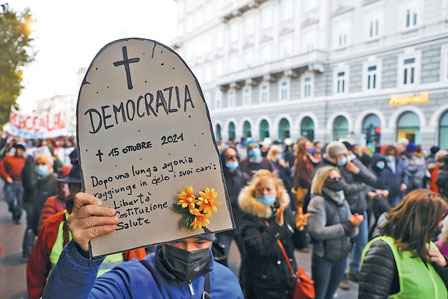 DEMOCRAZIA
15 OTTOBRE 2021
Dopo una lunga agonia
raggiunge in cielo i suoi cari:
Libertà
Costituzione
Salute